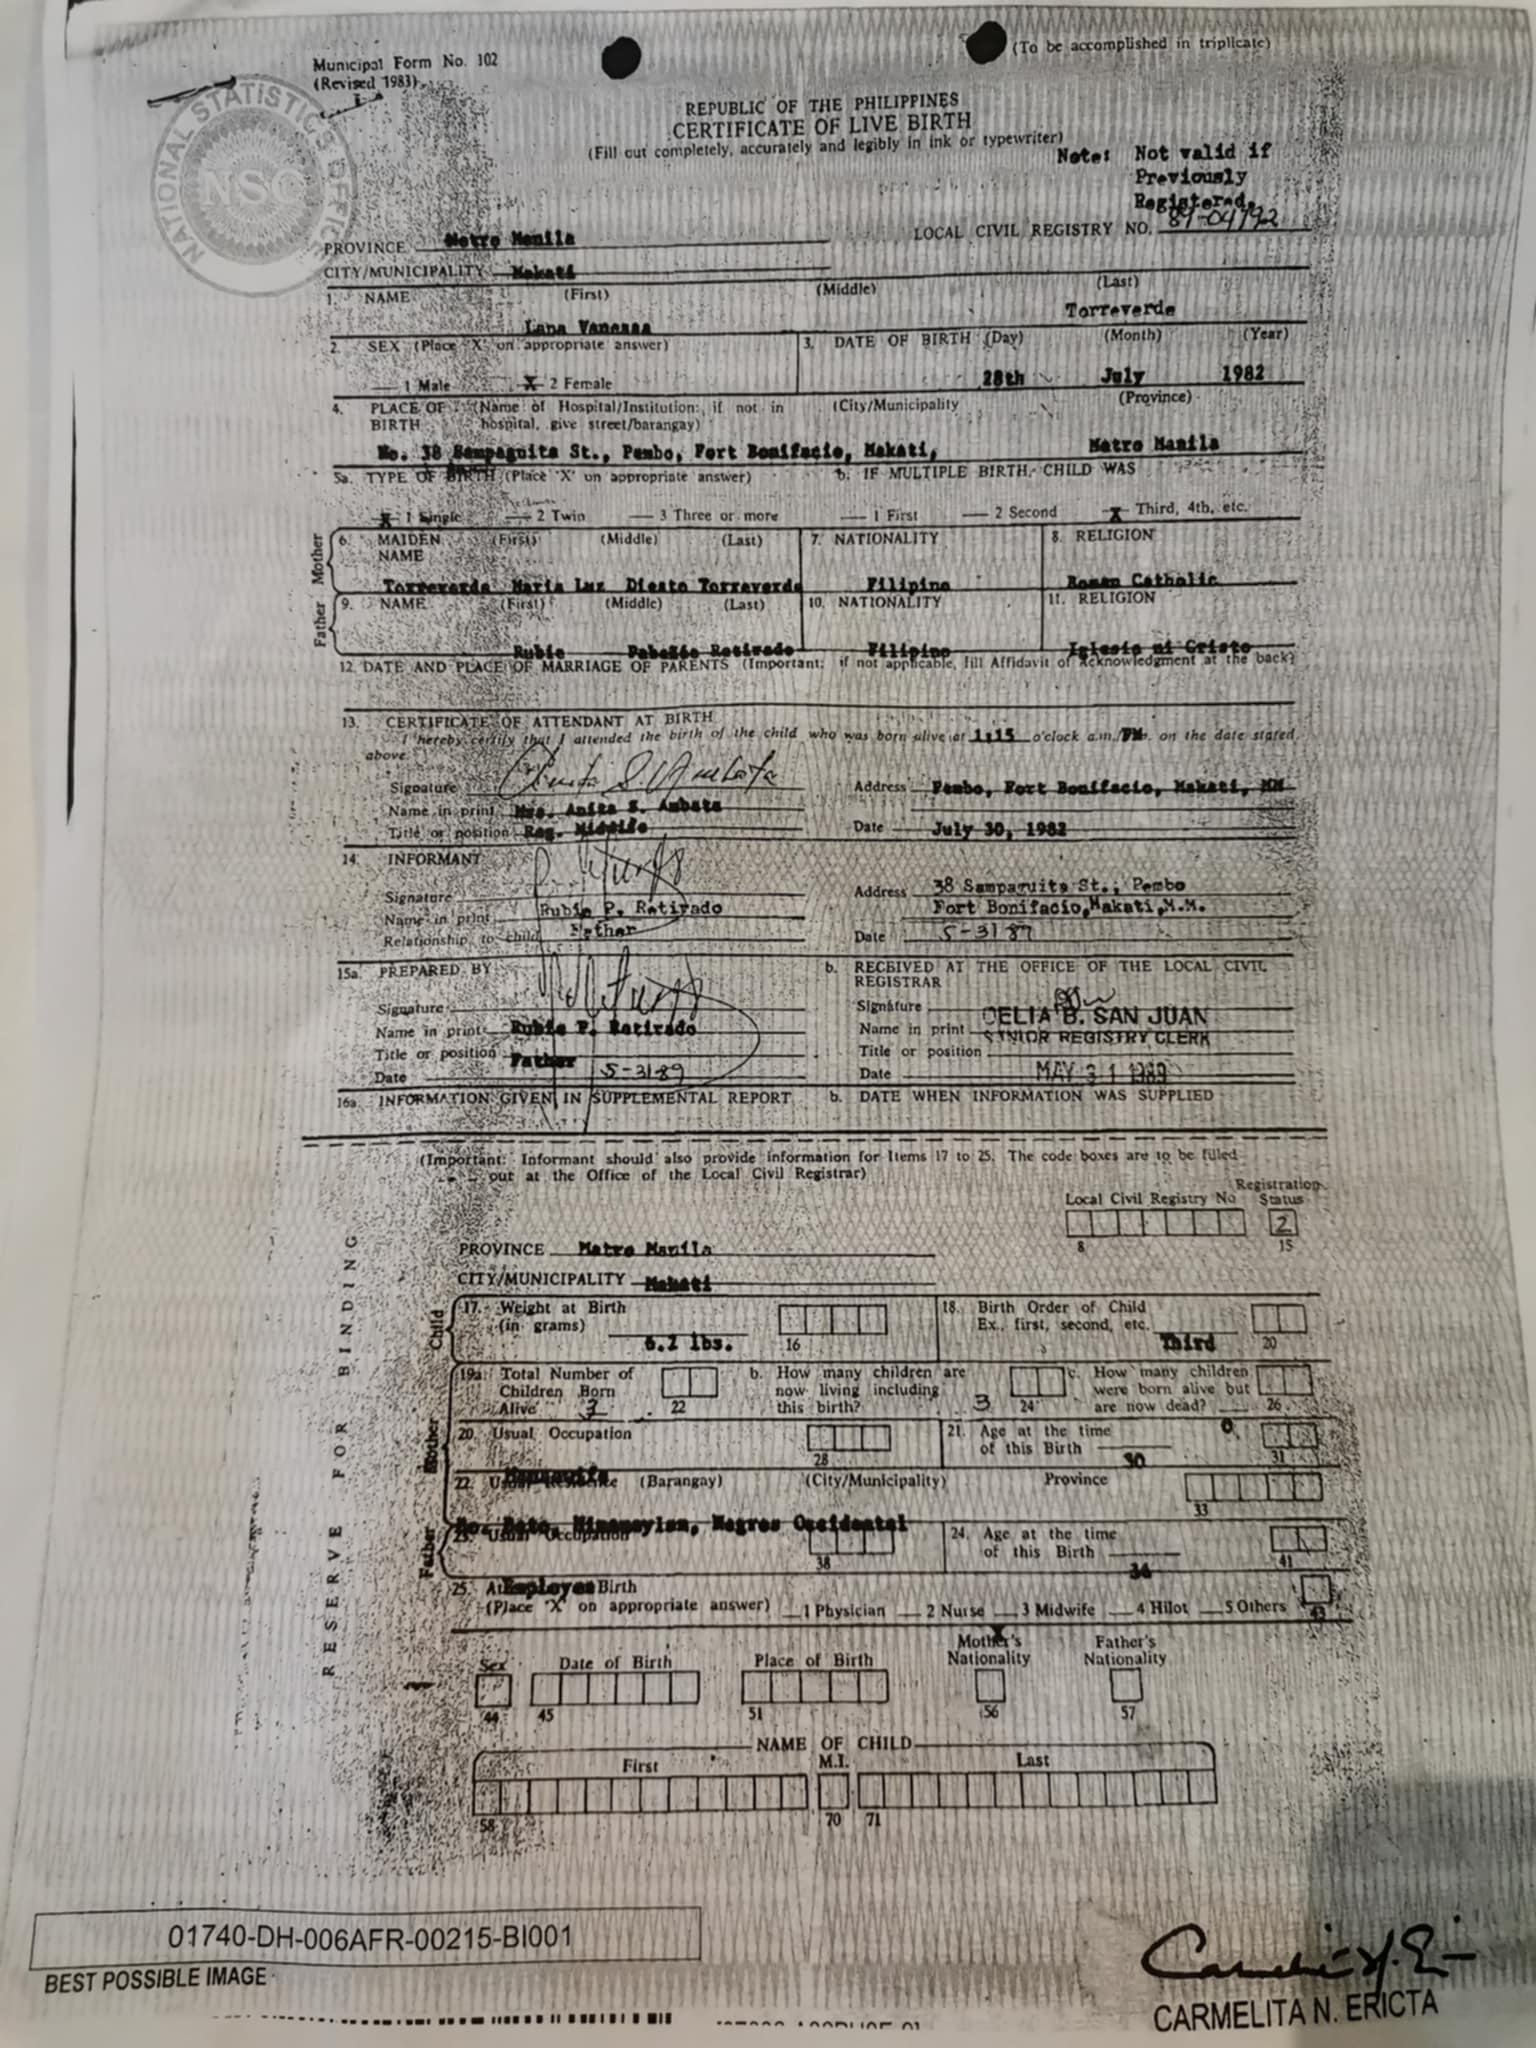 Municipal Form No. 102
(Revised 1983)
(To be accomplished in triplicate)
NATIONAL STATISTICS OFFICE
NSO
REPUBLIC OF THE PHILIPPINES
CERTIFICATE OF LIVE BIRTH
(Fill out completely, accurately and legibly in ink or typewriter)
Note: Not valid if
Previously
Registered.
LOCAL CIVIL REGISTRY NO. 89-04792
PROVINCE Metro Manila
CITY/MUNICIPALITY Makati
1. NAME (First) (Middle) (Last)
Lana Vanessa Torreverde
2. SEX (Place 'X' on appropriate answer) 3. DATE OF BIRTH (Day) (Month) (Year)
1 Male X 2 Female 28th July 1982
4. PLACE OF (Name of Hospital/Institution; if not in (City/Municipality (Province)
BIRTH hospital, give street/barangay)
No. 38 Sampaguita St., Pembo, Fort Bonifacio, Makati, Metro Manila
5a. TYPE OF BIRTH (Place 'X' on appropriate answer) b. IF MULTIPLE BIRTH, CHILD WAS
X 1 Single 2 Twin 3 Three or more 1 First 2 Second X Third, 4th, etc.
Mother
6. MAIDEN (First) (Middle) (Last) 7. NATIONALITY 8. RELIGION
NAME
Torreverde Maria Luz Torreverde Filipino Roman Catholic
Father
9. NAME (First) (Middle) (Last) 10. NATIONALITY 11. RELIGION
Rubie Retirado Filipino Iglesia ni Cristo
12. DATE AND PLACE OF MARRIAGE OF PARENTS (Important: if not applicable, fill Affidavit of Acknowledgment at the back)
13. CERTIFICATE OF ATTENDANT AT BIRTH
I hereby certify that I attended the birth of the child who was born alive at 1:15 o'clock a.m./PM. on the date stated
above
Signature Address Pembo, Fort Bonifacio, Makati, MM
Name in print Mrs. Anita S. Ambata
Title or position Reg. Midwife Date July 30, 1982
14. INFORMANT
Signature Address 38 Sampaguita St., Pembo
Name in print Rubie P. Retirado Fort Bonifacio, Makati, M.M.
Relationship to child Father Date 5-31 89
15a. PREPARED BY b. RECEIVED AT THE OFFICE OF THE LOCAL CIVIL
REGISTRAR
Signature Signature
Name in print Rubie P. Retirado Name in print CELIA B. SAN JUAN
Title or position Father Title or position SENIOR REGISTRY CLERK
Date 5-31-89 Date MAY 31 1989
16a. INFORMATION GIVEN IN SUPPLEMENTAL REPORT b. DATE WHEN INFORMATION WAS SUPPLIED
(Important: Informant should also provide information for Items 17 to 25. The code boxes are to be filled
out at the Office of the Local Civil Registrar)
Registration
Local Civil Registry No Status
2
8 15
RESERVE FOR BINDING
PROVINCE Metro Manila
CITY/MUNICIPALITY Makati
Child
17. Weight at Birth 18. Birth Order of Child
(in grams) Ex., first, second, etc.
6.2 lbs. 16 Third 20
Mother
19a. Total Number of b. How many children are c. How many children
Children Born now living including were born alive but
Alive 3 22 this birth? 3 24 are now dead? 26
0
20. Usual Occupation 21. Age at the time
of this Birth
28 30 31
Housewife
22. Usual Residence (Barangay) (City/Municipality) Province
33
Negros Occidental
Father
23. Usual Occupation 24. Age at the time
of this Birth
38 41
Employee
25. At Birth
(Place 'X' on appropriate answer) 1 Physician 2 Nurse 3 Midwife 4 Hilot 5 Others 43
X
Sex Date of Birth Place of Birth Mother's Nationality Father's Nationality
44 45 51 56 57
NAME OF CHILD
First M.I. Last
58 70 71
01740-DH-006AFR-00215-BI001
BEST POSSIBLE IMAGE
CARMELITA N. ERICTA